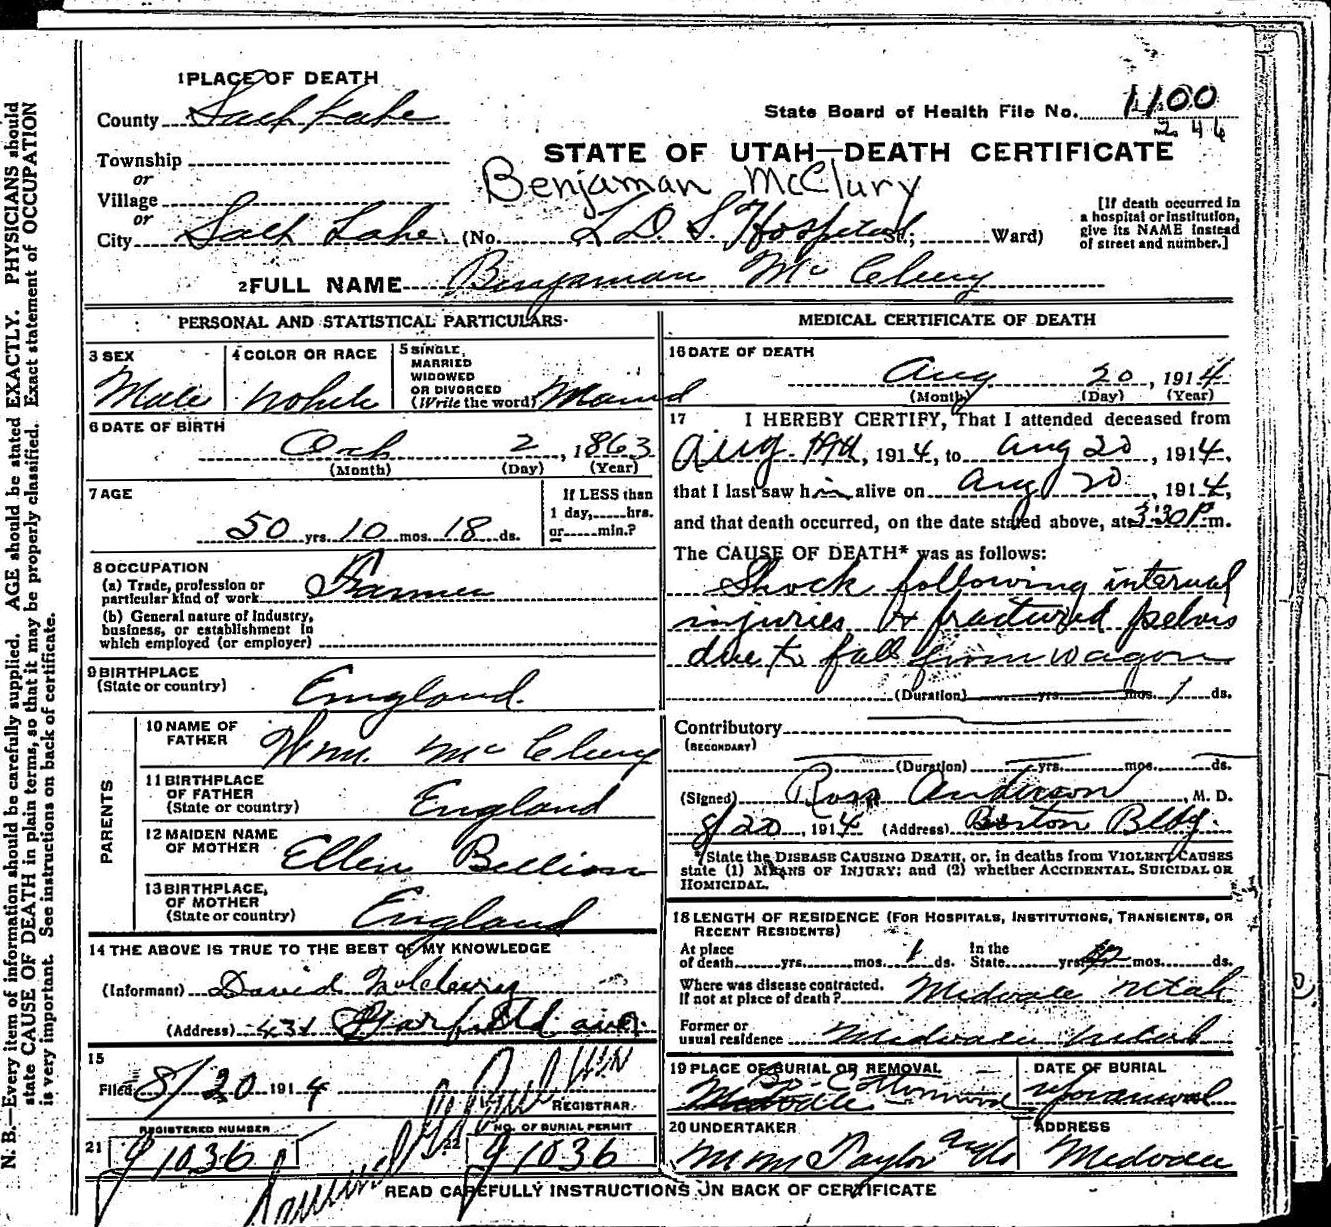 1 PLACE OF DEATH
County Salt Lake
State Board of Health File No. 1100
246
Township
or
STATE OF UTAH—DEATH CERTIFICATE
Benjaman McClury
Village
or
City Salt Lake (No. L.D.S. Hospital St.; Ward)
[If death occurred in a hospital or institution, give its NAME instead of street and number.]
2 FULL NAME Benjaman McClury
PERSONAL AND STATISTICAL PARTICULARS
3 SEX
Male
4 COLOR OR RACE
White
5 SINGLE, MARRIED WIDOWED OR DIVORCED (Write the word) Married
6 DATE OF BIRTH
Oct 2, 1863
(Month) (Day) (Year)
7 AGE
50 yrs. 10 mos. 18 ds.
If LESS than 1 day, hrs. or min.?
8 OCCUPATION
(a) Trade, profession or particular kind of work Farmer
(b) General nature of Industry, business, or establishment in which employed (or employer)
9 BIRTHPLACE
(State or country) England.
PARENTS
10 NAME OF FATHER Wm. McClury
11 BIRTHPLACE OF FATHER (State or country) England
12 MAIDEN NAME OF MOTHER Ellen
13 BIRTHPLACE, OF MOTHER (State or country) England
14 THE ABOVE IS TRUE TO THE BEST OF MY KNOWLEDGE
(Informant) David
(Address) 431 Garfield ave.
15
Filed 8/20 1914
REGISTRAR.
21 REGISTERED NUMBER
1036
22 NO. OF BURIAL PERMIT
1036
MEDICAL CERTIFICATE OF DEATH
16 DATE OF DEATH
Aug 20, 1914
(Month) (Day) (Year)
17 I HEREBY CERTIFY, That I attended deceased from
Aug. 19th, 1914, to Aug 20, 1914,
that I last saw him alive on Aug 20, 1914,
and that death occurred, on the date stated above, at 3:30 P.m.
The CAUSE OF DEATH* was as follows:
Shock following internal
injuries & fractured pelvis
due to fall from wagon
(Duration) yrs. mos. 1 ds.
Contributory
(SECONDARY)
(Duration) yrs. mos. ds.
(Signed) Ross Anderson, M. D.
8/20, 1914 (Address) Boston Bldg.
*State the DISEASE CAUSING DEATH, or, in deaths from VIOLENT CAUSES
state (1) MEANS OF INJURY; and (2) whether ACCIDENTAL, SUICIDAL OR
HOMICIDAL.
18 LENGTH OF RESIDENCE (FOR HOSPITALS, INSTITUTIONS, TRANSIENTS, OR
RECENT RESIDENTS)
At place of death yrs. mos. 1 ds. In the State yrs. mos. ds.
Where was disease contracted, If not at place of death? Midvale Utah
Former or usual residence Midvale Utah
19 PLACE OF BURIAL OR REMOVAL
Midvale
DATE OF BURIAL
20 UNDERTAKER
Taylor
ADDRESS
Midvale
READ CAREFULLY INSTRUCTIONS ON BACK OF CERTIFICATE
N. B.—Every item of information should be carefully supplied. AGE should be stated EXACTLY. PHYSICIANS should
state CAUSE OF DEATH in plain terms, so that it may be properly classified. Exact statement of OCCUPATION
is very important. See instructions on back of certificate.